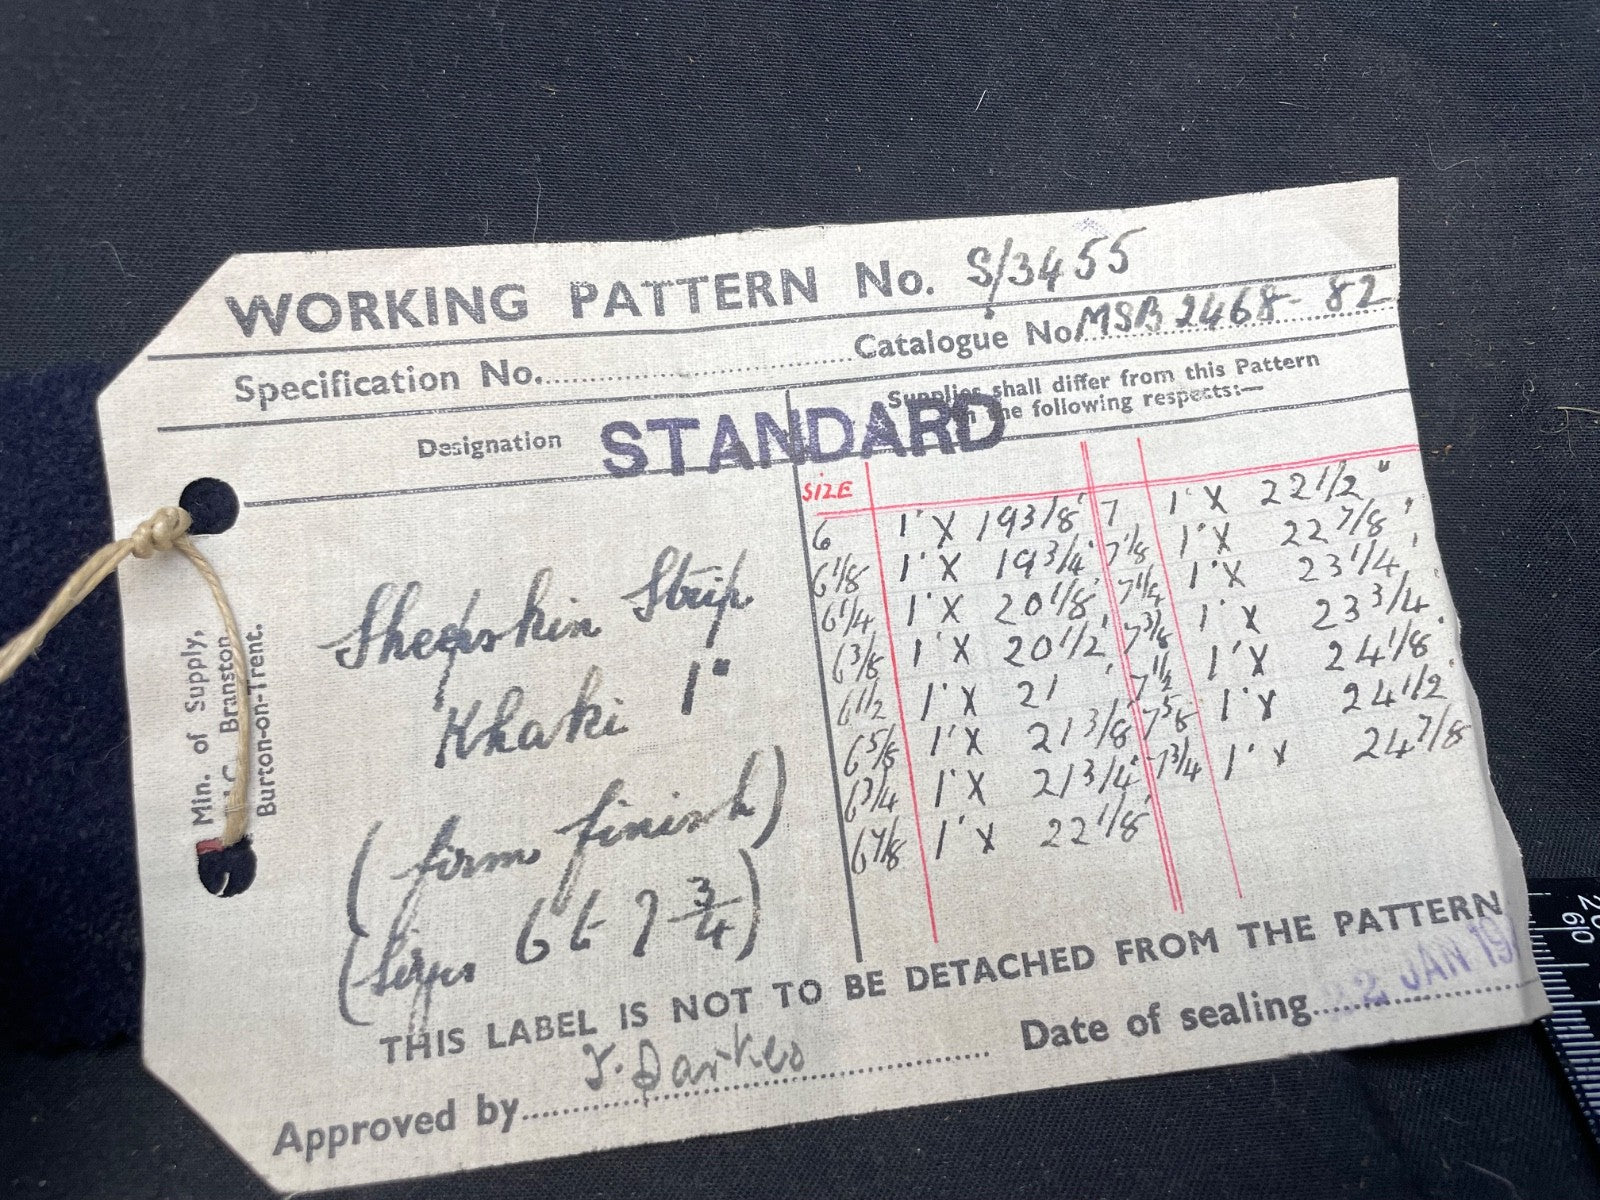 WORKING PATTERN No. S/3455
Specification No. Catalogue No. MSB 2468-82
Designation
STANDARD
Supplies shall differ from this Pattern
in the following respects:—
Sheepskin Strip
Khaki 1"
(firm finish)
(Sizes 6 to 7 3/4)
SIZE
6 1" X 19 3/8" 7 1" X 22 1/2"
6 1/8 1" X 19 3/4" 7 1/8 1" X 22 7/8"
6 1/4 1" X 20 1/8" 7 1/4 1" X 23 1/4"
6 3/8 1" X 20 1/2" 7 3/8 1" X 23 3/4"
6 1/2 1" X 21" 7 1/2 1" X 24 1/8"
6 5/8 1" X 21 3/8" 7 5/8 1" X 24 1/2"
6 3/4 1" X 21 3/4" 7 3/4 1" X 24 7/8"
6 7/8 1" X 22 1/8"
Min. of Supply,
Branston
Burton-on-Trent.
THIS LABEL IS NOT TO BE DETACHED FROM THE PATTERN
Approved by
Date of sealing 22 JAN 19
60